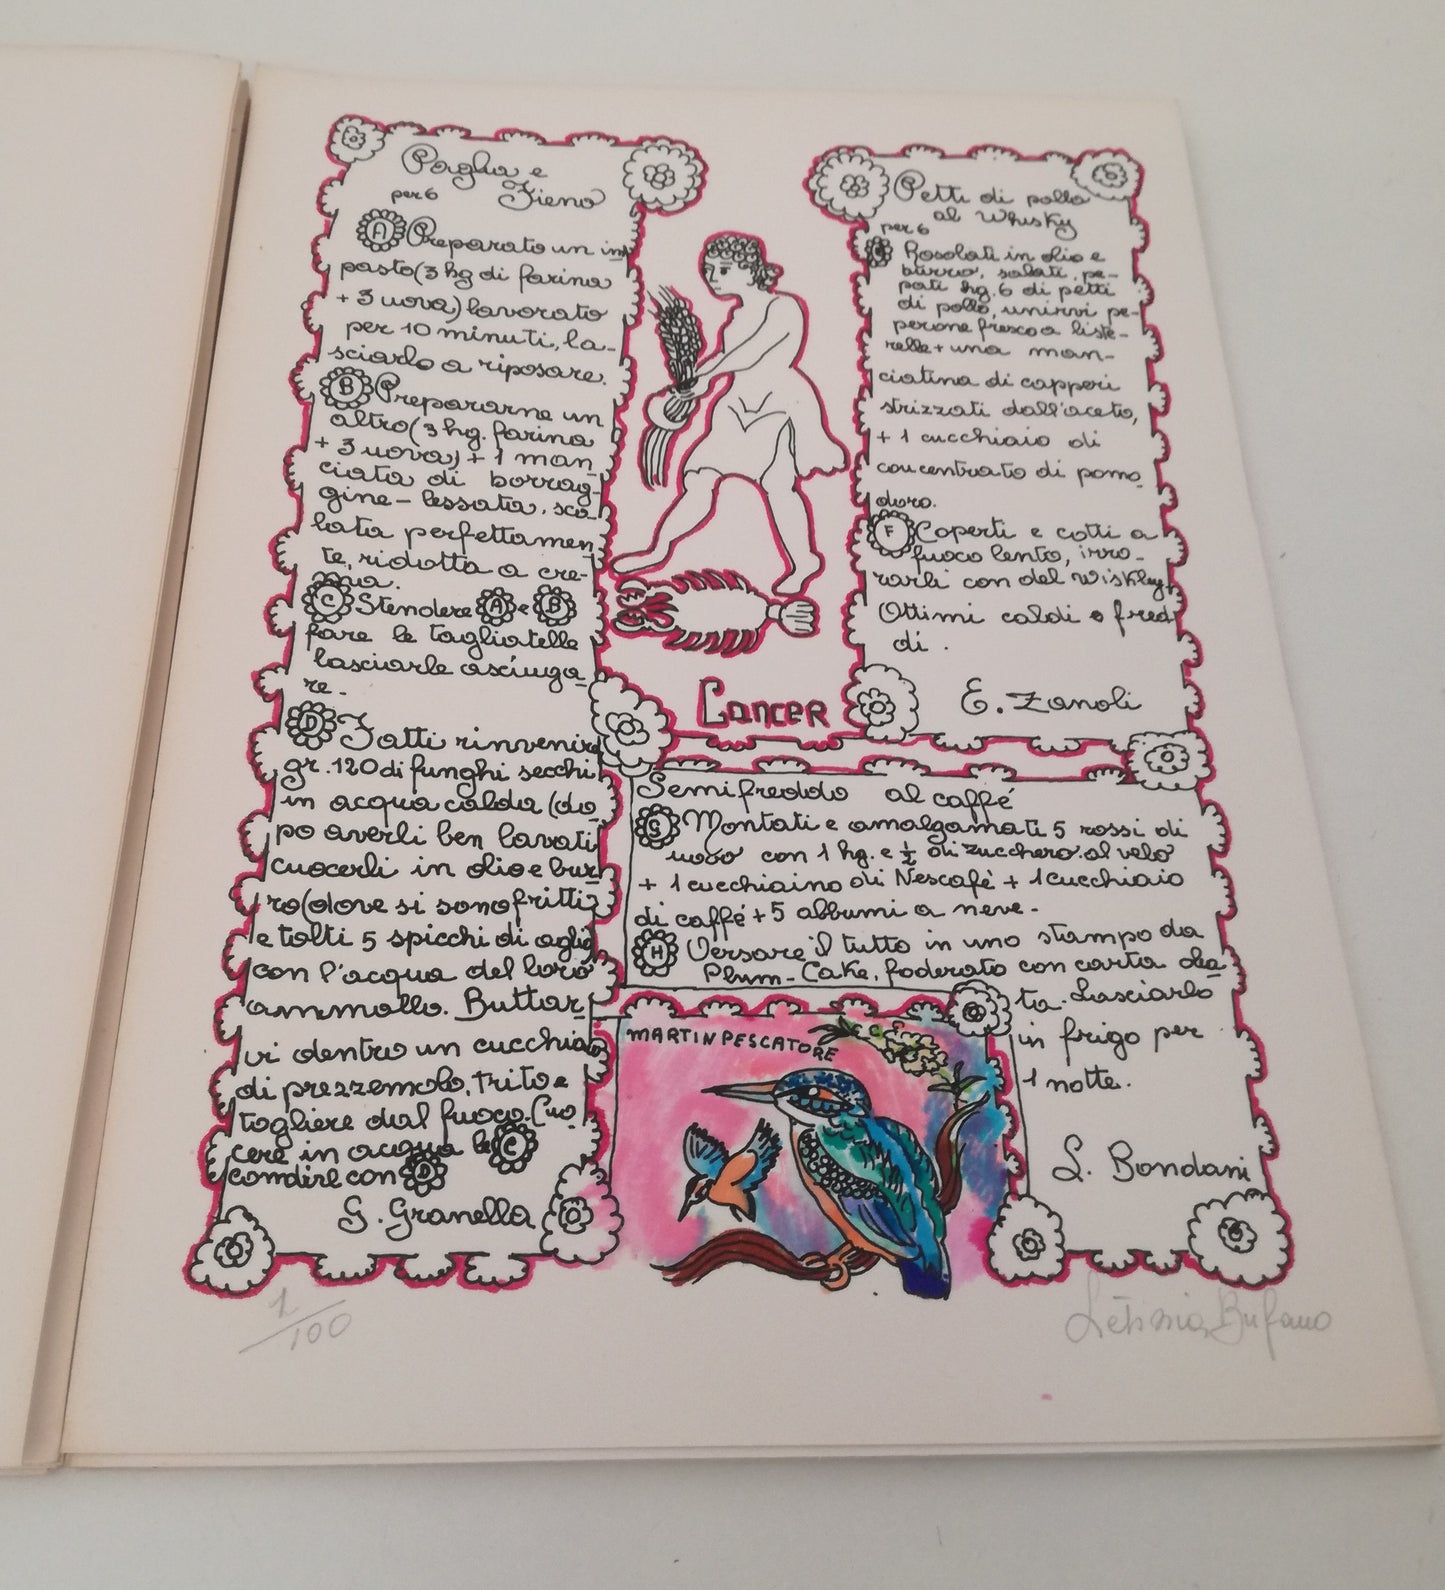 Paglia e
Fieno
per 6
A Preparato un im
pasto (3 hg di farina
+ 3 uova) lavorato
per 10 minuti, la-
sciarlo a riposare.
B Prepararne un
altro (3 hg. farina
+ 3 uova) + 1 man
ciata di borrag-
gine - lessata, sco
lata perfettamen
te, ridotta a cre-
ma.
C Stendere A e B
fare le tagliatelle
lasciarle asciuga
re.
D Fatti rinvenire
gr. 120 di funghi secchi
in acqua calda (do
po averli ben lavati
cuocerli in olio e bur
ro (dove si sono fritti
e tolti 5 spicchi di aglio
con l'acqua del loro
ammollo. Buttar
vi dentro un cucchiaio
di prezzemolo, trito e
togliere dal fuoco. Cuo
cere in acqua le C
condire con D
G. Granella
Cancer
Petti di pollo
al Whisky
per 6
Rosolati in olio e
burro, salati, pe-
pati hg. 6 di petti
di pollo, unirvi pe-
perone fresco a liste-
relle + una man-
ciatina di capperi
strizzati dall'aceto,
+ 1 cucchiaio di
concentrato di pomo
doro.
F Coperti e cotti a
fuoco lento, irro-
rarli con del wiskhey
Ottimi caldi o fred
di.
E. Zanoli
Semifreddo al caffé
G Montati e amalgamati 5 rossi di
uovo con 1 hg. e ½ di zucchero al velo
+ 1 cucchiaino di Nescafè + 1 cucchiaio
di caffé + 5 albumi a neve -
H Versare il tutto in uno stampo da
Plum-Cake, foderato con carta olea
ta. Lasciarlo
in frigo per
1 notte.
L. Bondani
MARTIN PESCATORE
1/100
Letizia Bufano